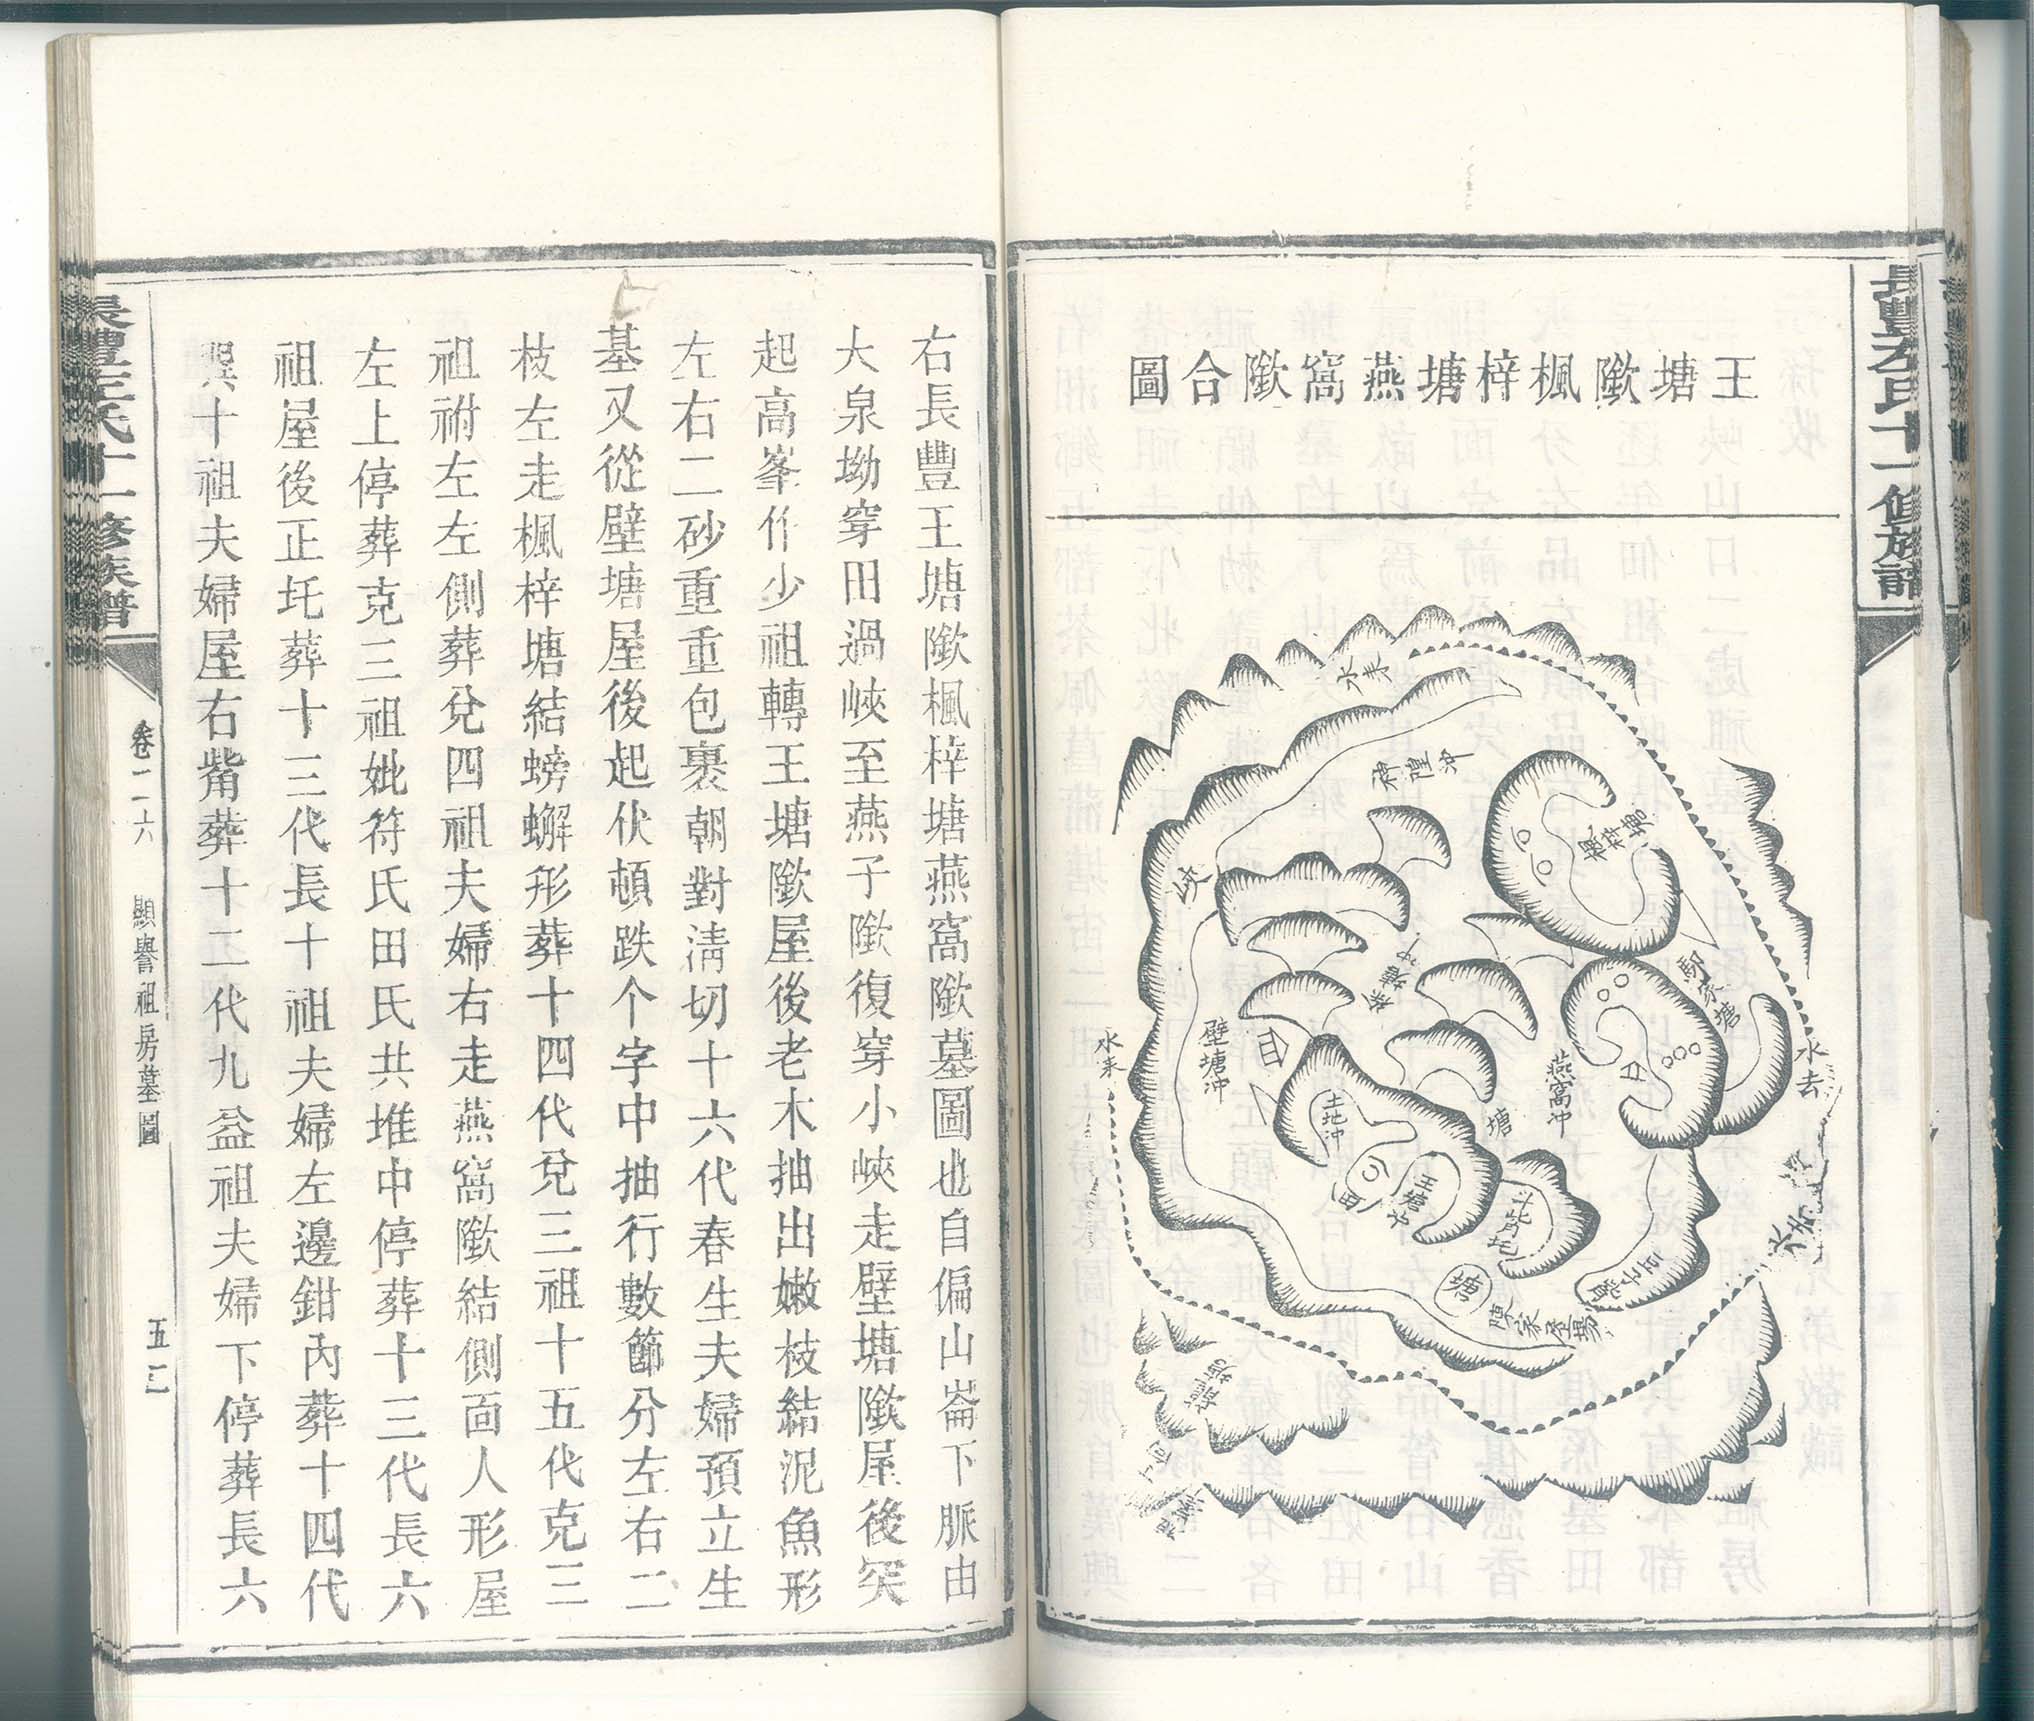 長豐左氏十一修族譜
王塘隞楓梓塘燕窩隞合圖
水來
神隍冲
楓梓塘
峽
壁塘冲
水來
土地冲
王塘冲
塘
燕窩冲
水去
塘
陳家屋場
右長豐王塘隞楓梓塘燕窩隞墓圖也自偏山崙下脈由
大泉坳穿田過峽至燕子隞復穿小峽走壁塘隞屋後突
起高峯作少祖轉王塘隞屋後老木抽出嫩枝結泥魚形
左右二砂重重包裹朝對清切十六代春生夫婦預立生
基又從壁塘屋後起伏頓跌个字中抽行數節分左右二
枝左走楓梓塘結螃蠏形葬十四代兌三祖十五代克三
祖祔左左側葬兌四祖夫婦右走燕窩隞結側面人形屋
左上停葬克三祖妣符氏田氏共堆中停葬十三代長六
祖屋後正圫葬十三代長十祖夫婦左邊鉗內葬十四代
巽十祖夫婦屋右觜葬十二代九益祖夫婦下停葬長六
長豐左氏十一修族譜
卷二六
顯譽祖房墓圖
五二